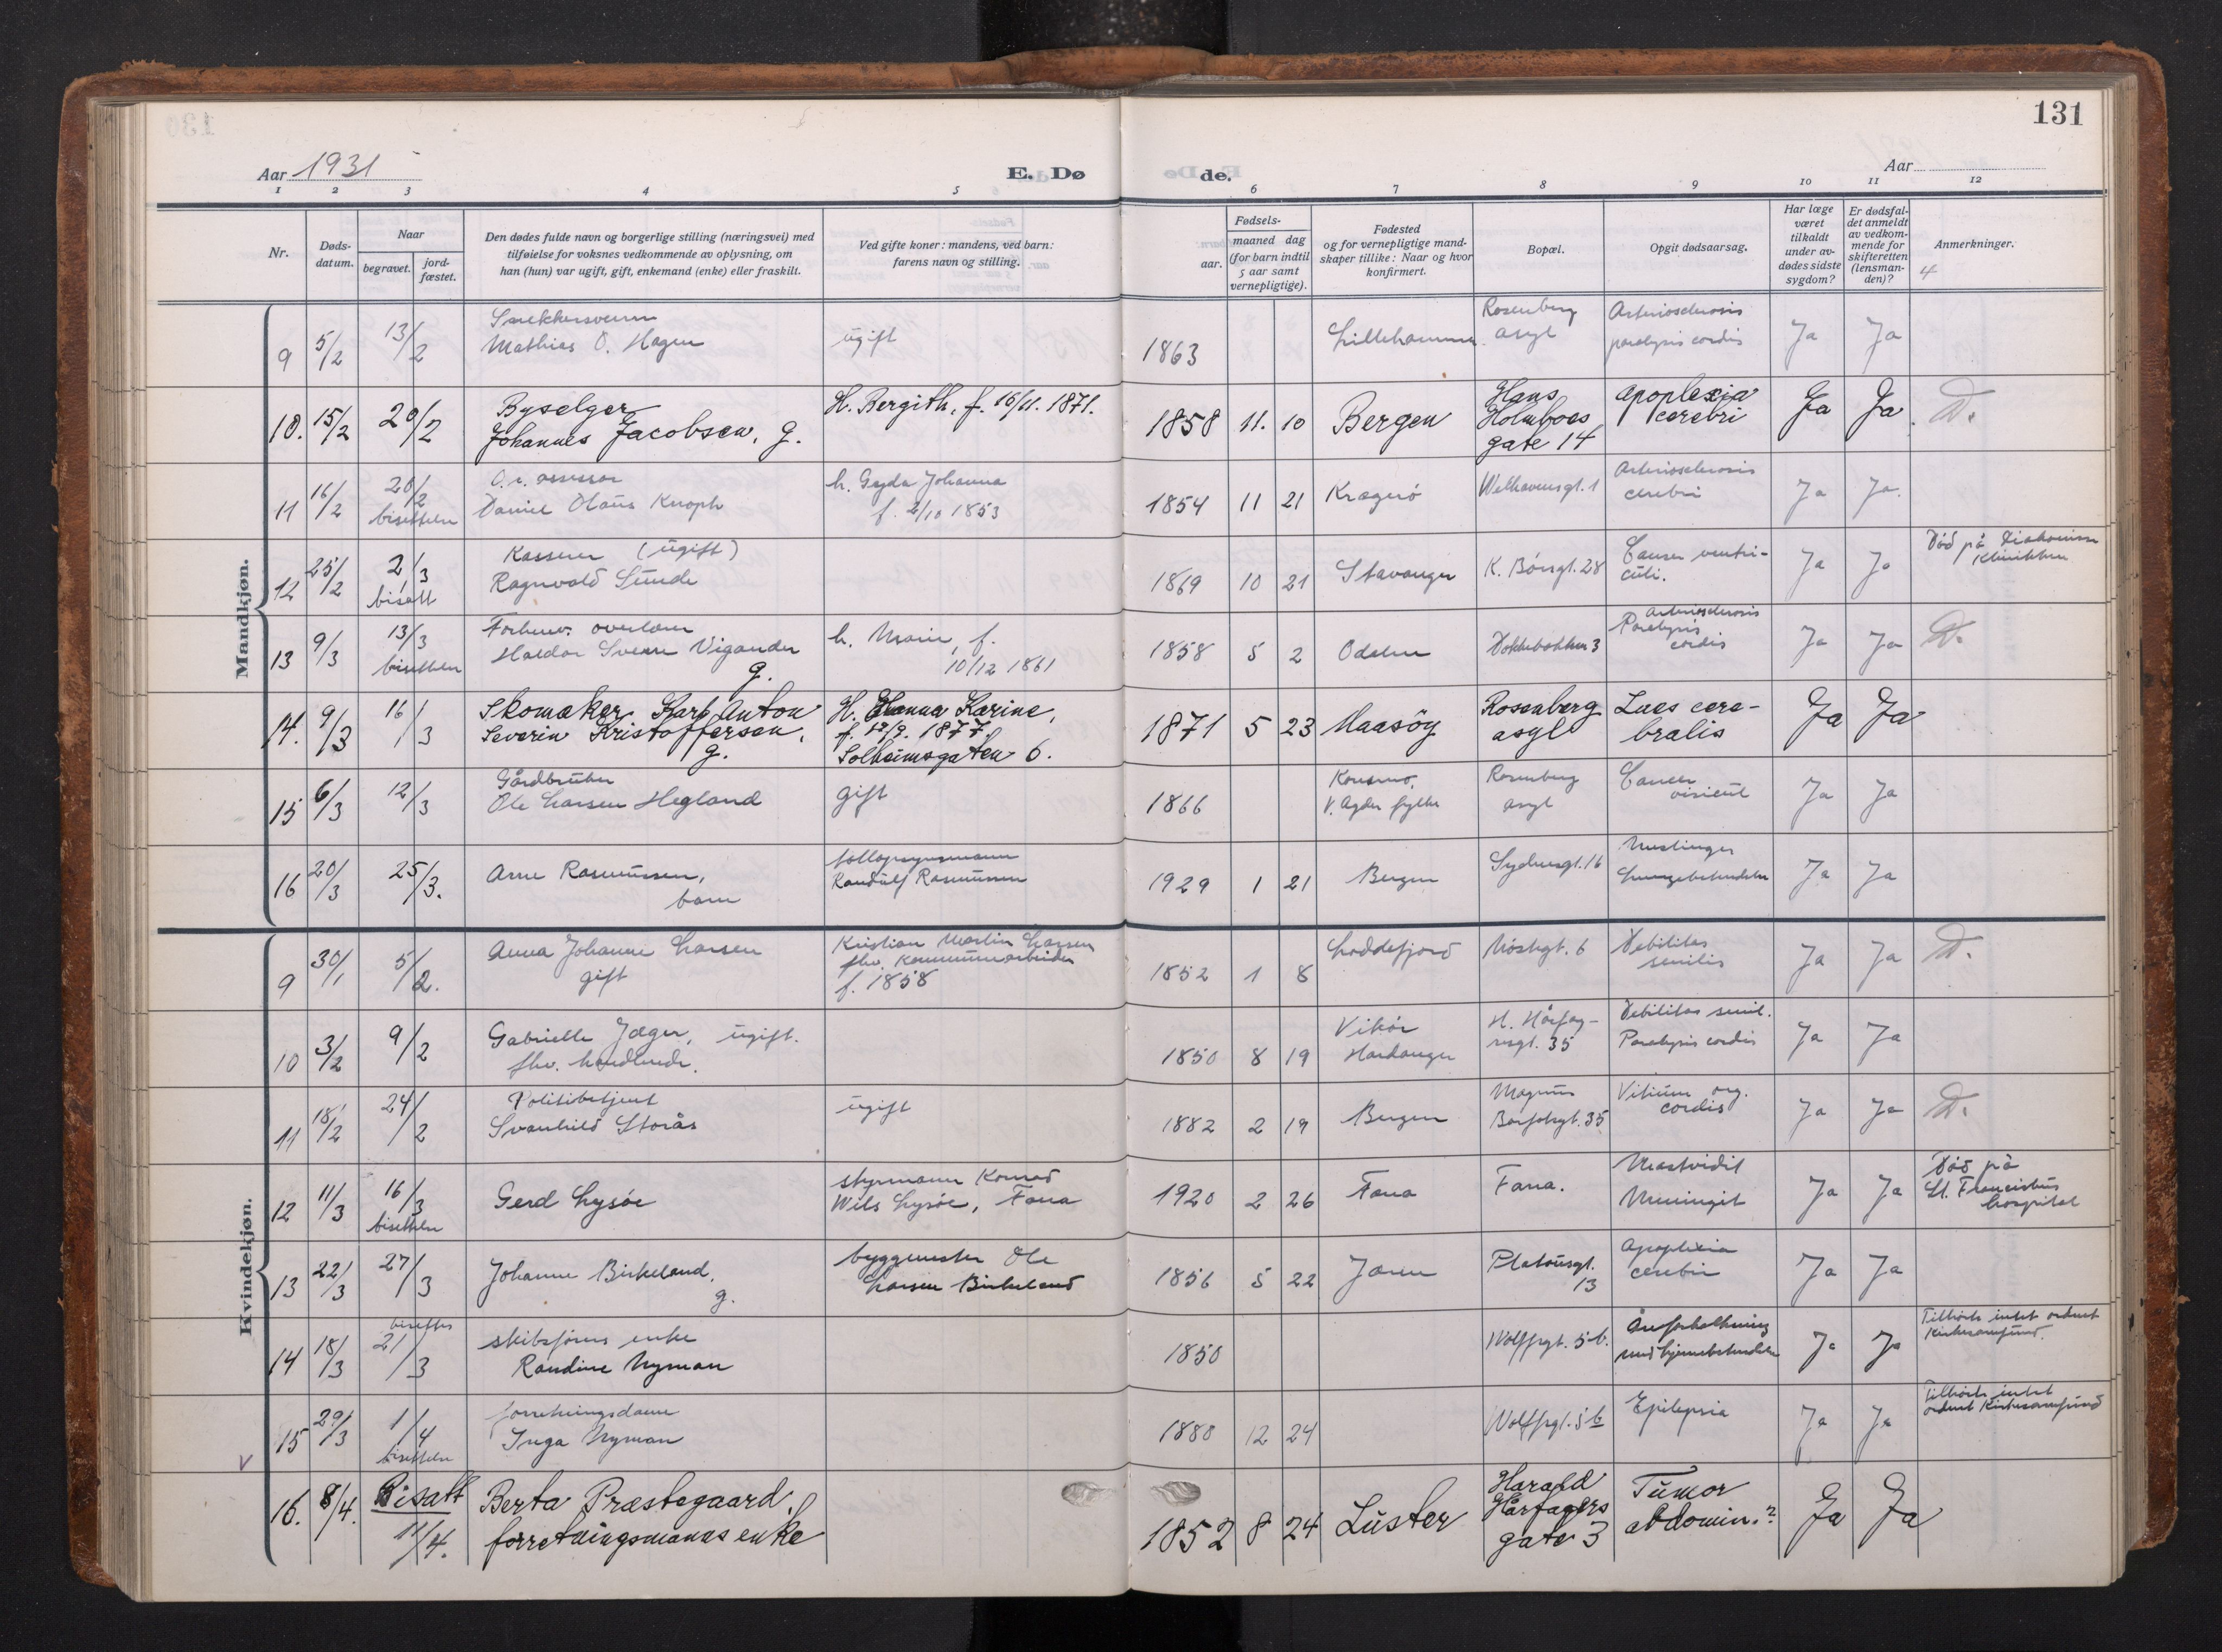 131
Aar 1931
E. Dø
de.
Aar
1 2 3 4 5 6 7 8 9 10 11 12
Nr.
Døds-
datum.
Naar
begravet.
jord-
fæstet.
Den dødes fulde navn og borgerlige stilling (næringsvei) med
tilføielse for voksnes vedkommende av oplysning, om
han (hun) var ugift, gift, enkemand (enke) eller fraskilt.
Ved gifte koner: mandens, ved barn:
farens navn og stilling.
Fødsels-
aar.
maaned dag
(for barn indtil
5 aar samt
vernepligtige).
Fødested
og for vernepligtige mand-
skaper tillike: Naar og hvor
konfirmert.
Bopæl.
Opgit dødsaarsag.
Har læge
været
tilkaldt
under av-
dødes sidste
sygdom?
Er dødsfal-
det anmeldt
av vedkom-
mende for
skifteretten
(lensman-
den)?
Anmerkninger.
4
Mandkjøn.
9 5/2 13/2
Snekkersvenn
Mathias O. Hagen
ugift
1863
Lillehammer
Rosenberg
asyl
Arteriosclerosis
paralysis cordis
Ja Ja
10. 15/2 20/2
Byselger
Johannes Jacobsen, g.
H. Bergith, f. 16/11. 1871.
1858 11. 10
Bergen
Hans
Holmboes
gate 14
Apoplexia
cerebri
Ja Ja. D.
11 16/2 20/2
bisettelse
O.r. assessor
Daniel Olaus Knoph
h. Gyda Johanna
f. 2/10 1853
1854 11 21
Kragerø
Welhavensgt. 1
Arteriosclerosis
cerebri
Ja Ja.
12 25/2 2/3
bisatt
Kasserer (ugift)
Ragnvald Sunde
1869 10 21
Stavanger
K. Børsgt. 28
Cancer ventri-
culi.
Ja Ja
Død på Diakonisse
Klinikken
13 9/3 13/3
bisettelse
Forhenv. overlærer
Haldor Sverre Vigander
g.
h. Marie, f.
10/12 1861
1858 5 2
Odalen
Dokkebakken 3
Arteriosclerosis
Paralysis
cordis
Ja Ja D.
14. 9/3 16/3
Skomaker Karl Anton
Severin Kristoffersen,
g.
H. Hanna Karine,
f. 12/9. 1877.
Solheimsgaten 6.
1871 5 23
Maasöy
Rosenberg
asyl
Lues cere-
bralis
Ja Ja
15 6/3 12/3
Gårdbruker
Ole Larsen Hegland
gift
1866
Konsmo,
V. Agder fylke
Rosenberg
asyl
Cancer
Ja Ja
16 20/3 25/3.
Arne Rasmussen,
barn
Randulf Rasmussen
1929 1 21
Bergen
Sydnesgt. 16
Meslinger
Lungebetendelse
Ja Ja
Kvindekjøn.
9 30/1 5/2.
Anna Johanne Larsen
gift
Kristian Martin Larsen
fhv. kommunearbeider
f. 1858
1852 1 8
Loddefjord
Nøstegt. 6
Debilitas
senilis
Ja Ja D.
10 3/2 9/2
Gabrielle Jæger, ugift.
fhv. handlende.
1850 8 19
Vikør
Hardanger
H. Hårfag-
resgt. 35
Debilitas senil.
Paralysis cordis
Ja Ja
11 18/2 24/2
Politibetjent
Svanhild Storås
ugift
1882 2 19
Bergen
Magnus
Barfotsgt. 35
Vitium org.
cordis
Ja Ja D.
12 11/3 16/3
bisettelse
Gerd Lysöe
styrmann Konrad
Nils Lysöe, Fana
1920 2 26
Fana
Fana.
Mastoidit
Meningit
Ja Ja
Død på
St. Franciskus
hospital
13 22/3 27/3
Johanne Birkeland,
g.
byggmester Ole
Larsen Birkeland
1856 5 22
Jæren
Platousgt.
13
Apoplexia
cerebri
Ja Ja
14 18/3
bisettes
21/3
skibsførers enke
Randine Nyman
1850
Wolffsgt. 5 b.
Åreforkalkning
med hjernebetendelse
Ja Ja
Tilhørte intet ordnet
Kirkesamfund.
v
15 29/3 1/4
bisettelse
forretningsdame
Inga Nyman
1880 12 24
Wolffsgt. 5 b
Epilepsia
Ja Ja
Tilhørte intet
ordnet Kirkesamfund
16. 8/4. Bisatt
11/4.
Berta Præstegaard,
forretningsmanns enke
1852 8 24
Luster
Harald
Hårfagers
gate 3
Tumor
abdomin.?
Ja Ja